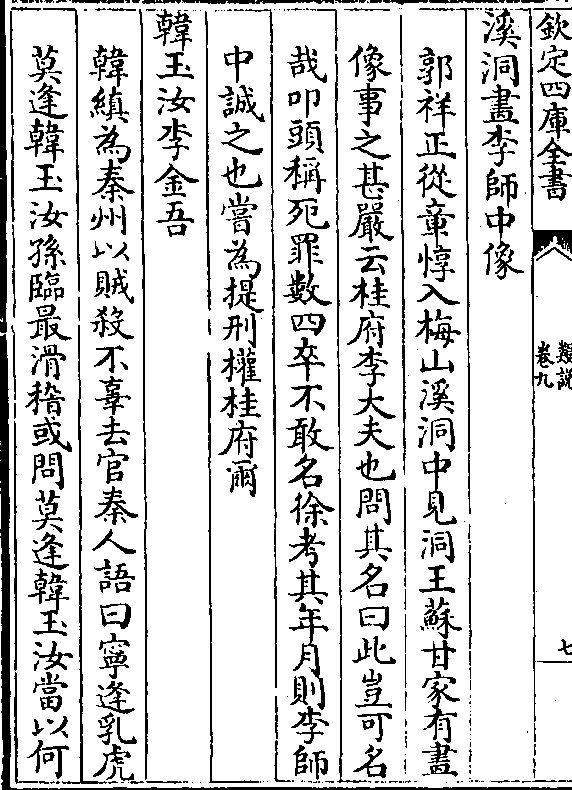 欽定四庫全書
類說
卷九
七
溪洞畫李師中像
郭祥正從章惇入梅山溪洞中見洞王蘇甘家有畫
像事之甚嚴云桂府李大夫也問其名曰此豈可名
哉叩頭稱死罪數四卒不敢名徐考其年月則李師
中誠之也嘗為提刑權桂府爾
韓玉汝李金吾
韓縝為秦州以賊殺不辜去官秦人語曰寧逢乳虎
莫逢韓玉汝孫臨最滑稽或問莫逢韓玉汝當以何